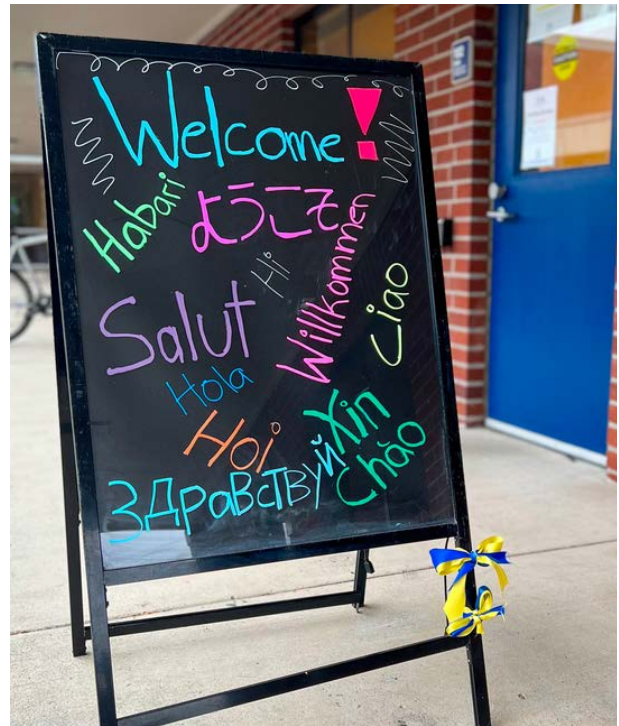 Welcome!
Habari
ようこそ
Hi
Willkommen
Salut
Ciao
Hola
Hoi
Xin
Chào
Здравствуй